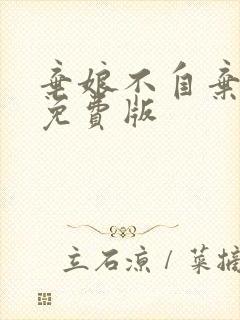 弃娘不自弃
免費版
立石凉 / 菜摘